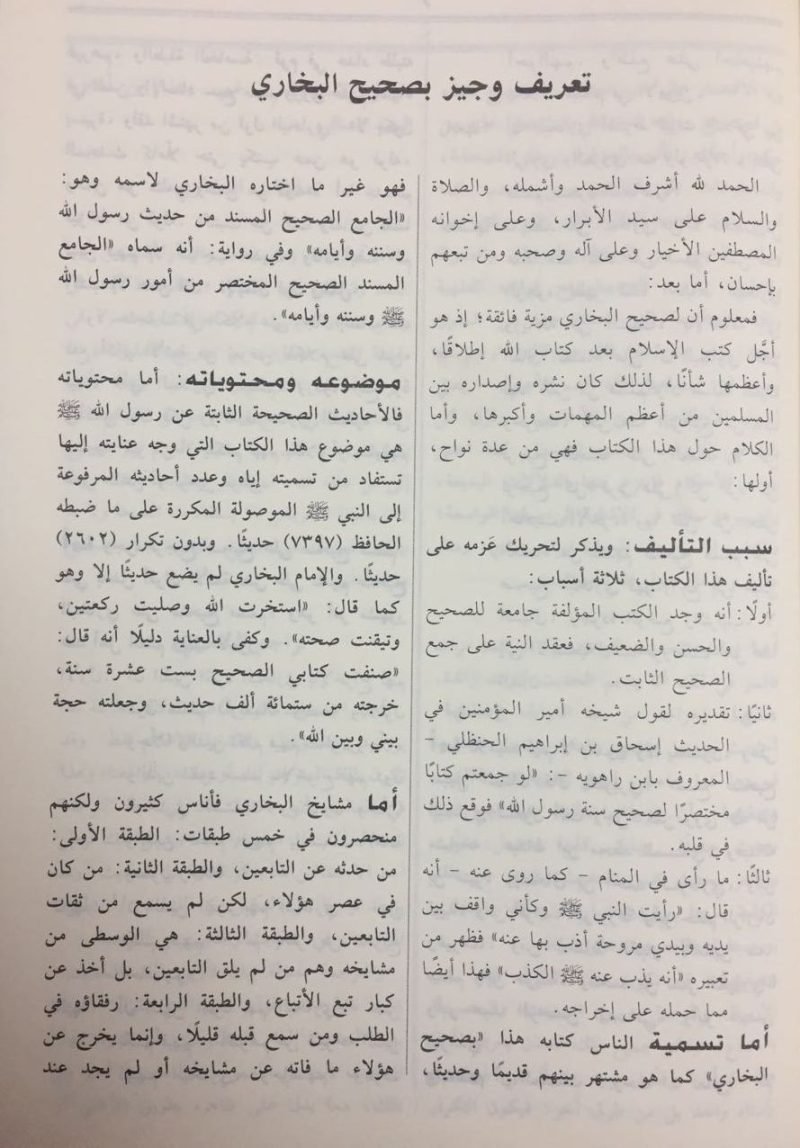 تعريف وجيز بصحيح البخاري
الحمد لله أشرف الحمد وأشمله، والصلاة
والسلام على سيد الأبرار، وعلى إخوانه
المصطفين الأخيار وعلى آله وصحبه ومن تبعهم
بإحسان، أما بعد:
فمعلوم أن لصحيح البخاري مزية فائقة؛ إذ هو
أجَّل كتب الإسلام بعد كتاب الله إطلاقًا،
وأعظمها شأنًا، لذلك كان نشره وإصداره بين
المسلمين من أعظم المهمات وأكبرها، وأما
الكلام حول هذا الكتاب فهي من عدة نواح،
أولها:
سبب التأليف: ويذكر لتحريك عَزمه على
تأليف هذا الكتاب، ثلاثة أسباب:
أولًا: أنه وجد الكتب المؤلفة جامعة للصحيح
والحسن والضعيف، فعقد النية على جمع
الصحيح الثابت.
ثانيًا: تقديره لقول شيخه أمير المؤمنين في
الحديث إسحاق بن إبراهيم الحنظلي –
المعروف بابن راهويه –: «لو جمعتم كتابًا
مختصرًا لصحيح سنة رسول الله» فوقع ذلك
في قلبه.
ثالثًا: ما رأى في المنام – كما روى عنه – أنه
قال: «رأيت النبي ﷺ وكأني واقف بين
يديه وبيدي مروحة أذب بها عنه» فظهر من
تعبيره «أنه يذب عنه ﷺ الكذب» فهذا أيضًا
مما حمله على إخراجه.
أما تسمية الناس كتابه هذا «بصحيح
البخاري» كما هو مشتهر بينهم قديمًا وحديثًا،
فهو غير ما اختاره البخاري لاسمه وهو:
«الجامع الصحيح المسند من حديث رسول الله
وسننه وأيامه» وفي رواية: أنه سماه «الجامع
المسند الصحيح المختصر من أمور رسول الله
ﷺ وسننه وأيامه».
موضوعه ومحتوياته: أما محتوياته
فالأحاديث الصحيحة الثابتة عن رسول الله ﷺ
هي موضوع هذا الكتاب التي وجه عنايته إليها
تستفاد من تسميته إياه وعدد أحاديثه المرفوعة
إلى النبي ﷺ الموصولة المكررة على ما ضبطه
الحافظ (٧٣٩٧) حديثًا. وبدون تكرار (٢٦٠٢)
حديثًا. والإمام البخاري لم يضع حديثًا إلا وهو
كما قال: «استخرت الله وصليت ركعتين،
وتيقنت صحته». وكفى بالعناية دليلًا أنه قال:
«صنفت كتابي الصحيح بست عشرة سنة،
خرجته من ستمائة ألف حديث، وجعلته حجة
بيني وبين الله».
أما مشايخ البخاري فأناس كثيرون ولكنهم
منحصرون في خمس طبقات: الطبقة الأولى:
من حدثه عن التابعين، والطبقة الثانية: من كان
في عصر هؤلاء، لكن لم يسمع من ثقات
التابعين، والطبقة الثالثة: هي الوسطى من
مشايخه وهم من لم يلق التابعين، بل أخذ عن
كبار تبع الأتباع، والطبقة الرابعة: رفقاؤه في
الطلب ومن سمع قبله قليلًا، وإنما يخرج عن
هؤلاء ما فاته عن مشايخه أو لم يجد عند